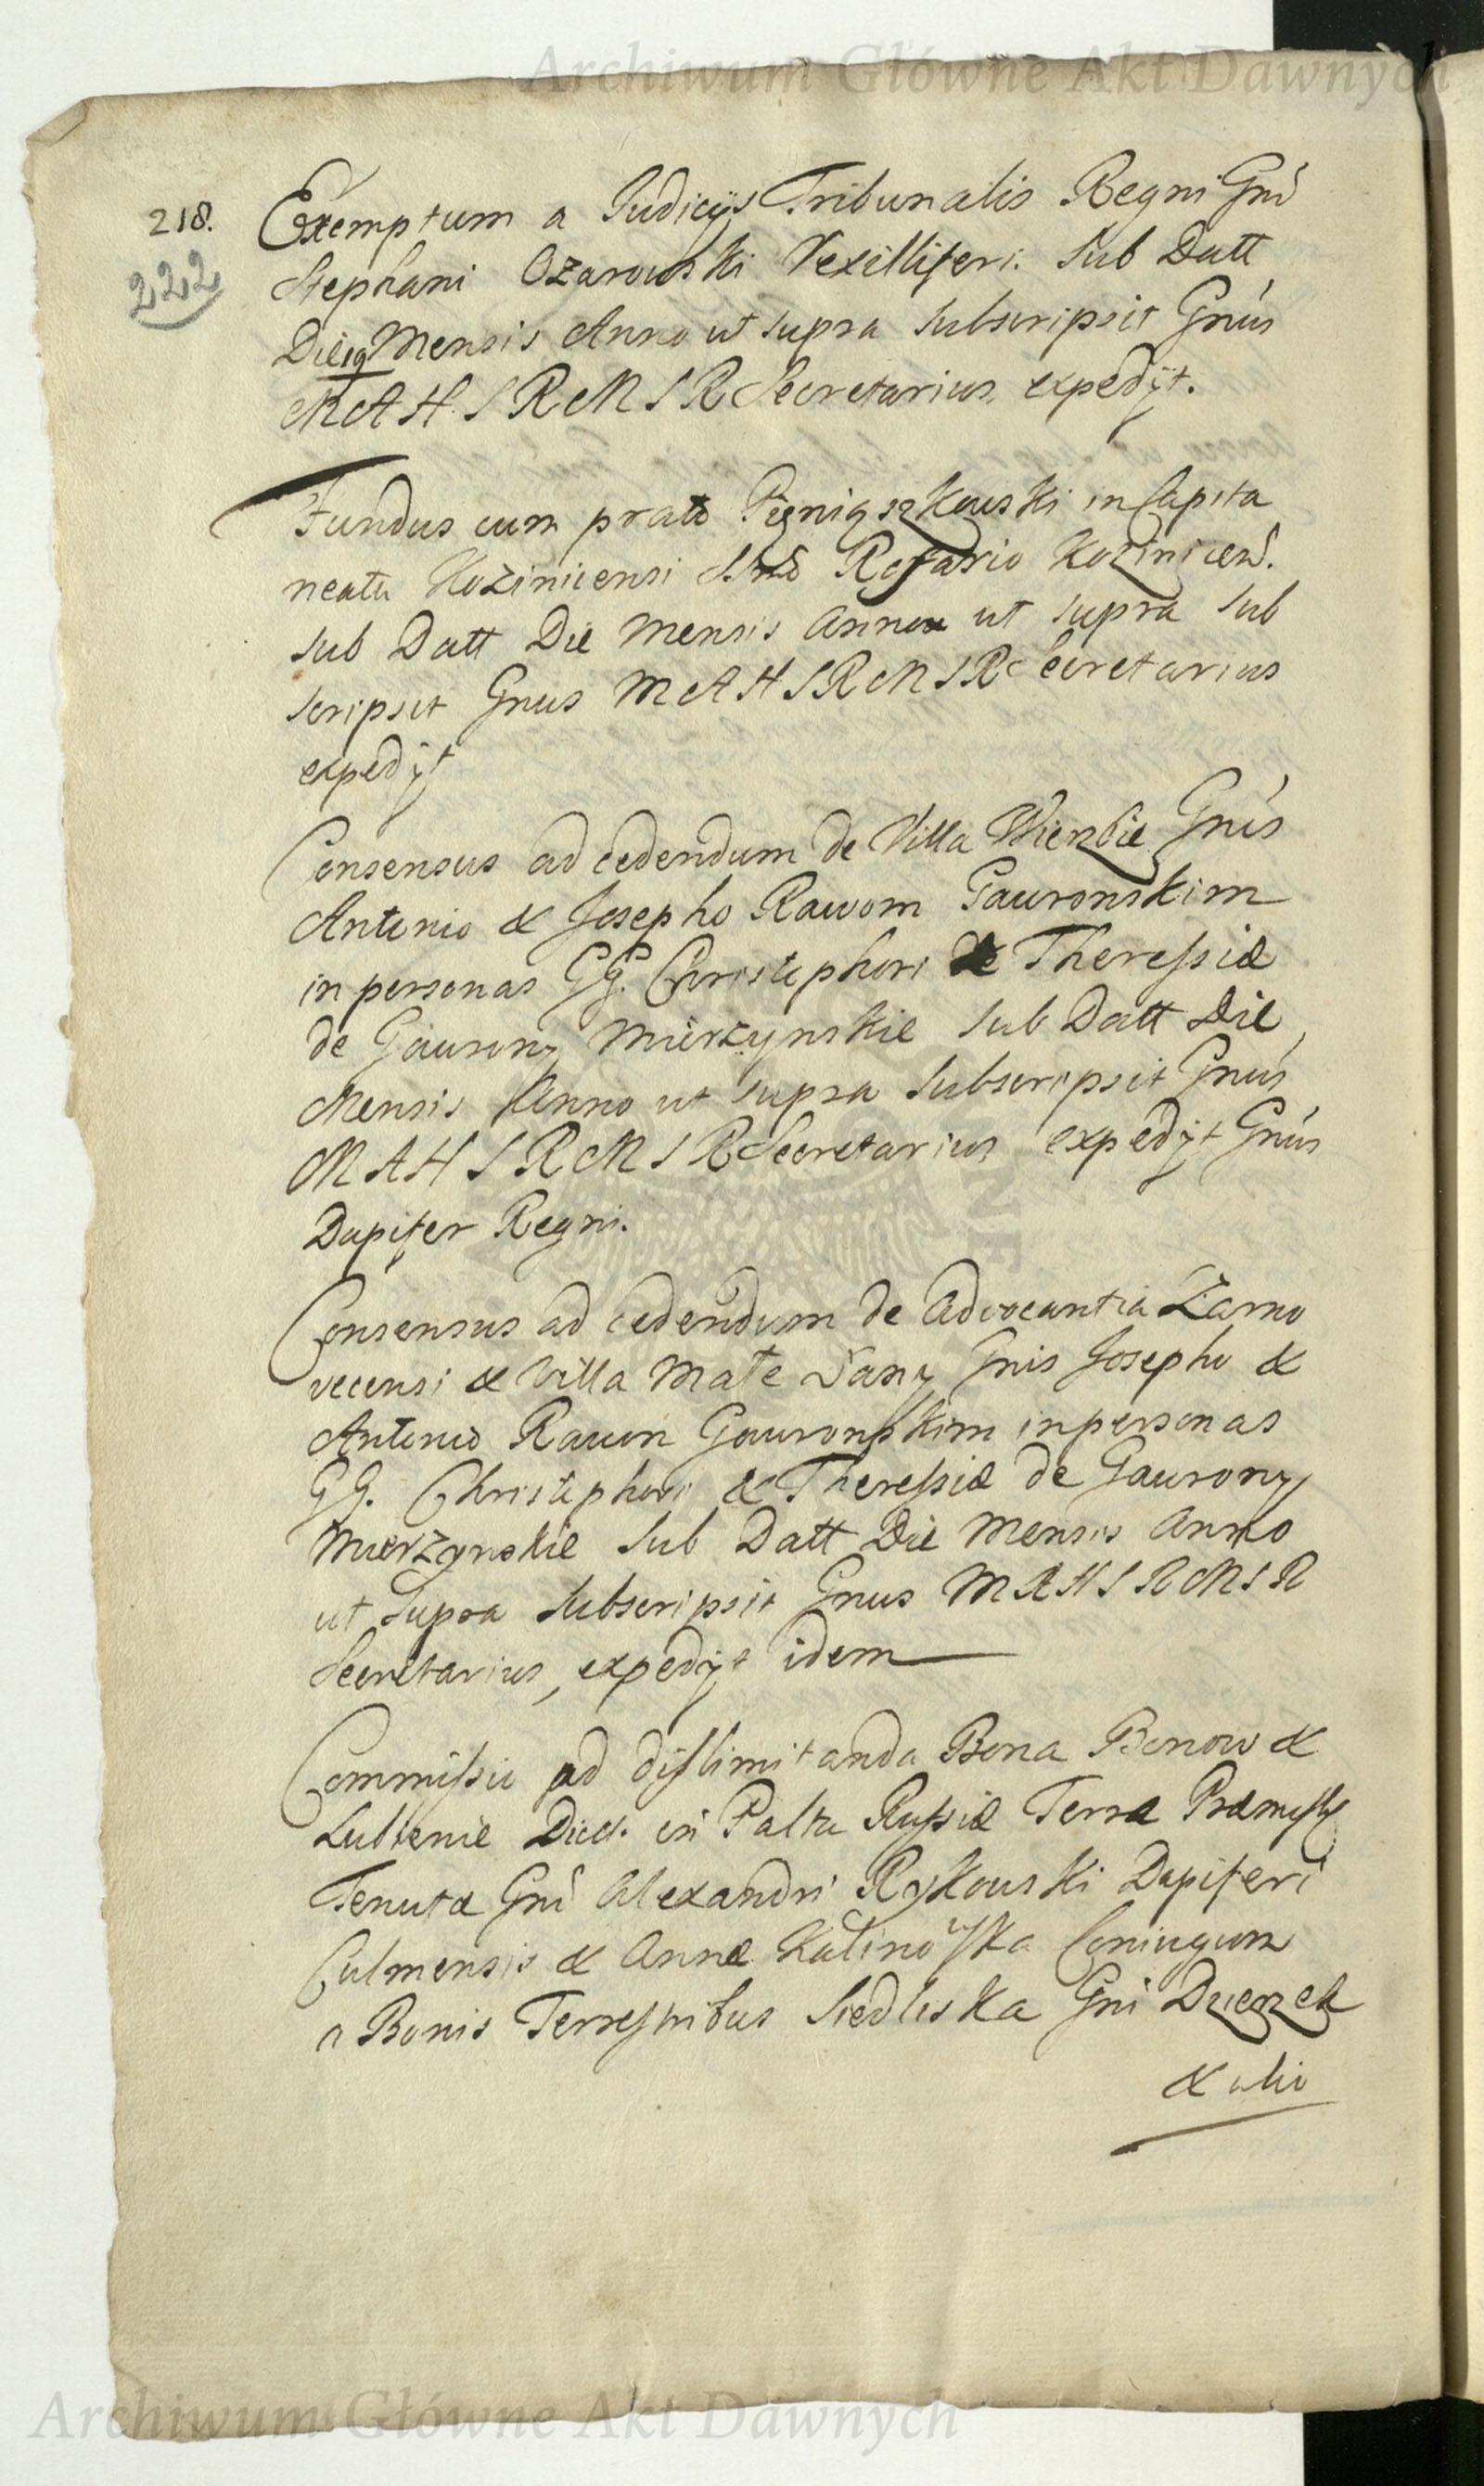 Archiwum Główne Akt Dawnych
218.
222
Exemptum a Judicijs Tribunalis Regni Gnî
Stephani Ozarowski Vexilliferi. Sub Datt
Die Mensis Anno ut supra Subscripsit Gnús
M A H S R M S R Secretarius expedijt.
Fundus cum prato in Capita
neatu Koziniicensi Rosario
Sub Datt Die Mensis Anno ut supra Sub
scripsit Gnus M A H S R M S R Secretarius
expedijt
Consensus ad cedendum de Villa Wierzbie Gnis
Antonio & Josepho Rawom Gawronskim
in personas GG. Christophori & Theressiæ
de Gawrony Mierzynskie Sub Datt Die
Mensis Anno ut supra Subscripsit Gnús
M A H S R M S R Secretarius expedijt Gnús
Dapifer Regni.
Consensus ad cedendum de Advocantia Zarno
vecensi & Villa Małe Gnis Josepho &
Antonio Rawon Gawronskim in personas
GG. Christophori & Theressiæ de Gawrony
Mierzynskie Sub Datt Die Mensis Anno
ut Supra Subscripsit Gnus M A H S R M S R
Secretarius, expedijt idem
Commissio ad dislimitanda Bona Bonow &
Lubienie Dict. in Paltu Russiæ Terræ Præmysl
Tenutæ Gnî Alexandri Rykowski Dapiferi
Culmensis & Annæ Kalinowska Coniugum
a Bonis Terrestribus Siedliska Gnî
& alio
Archiwum Główne Akt Dawnych